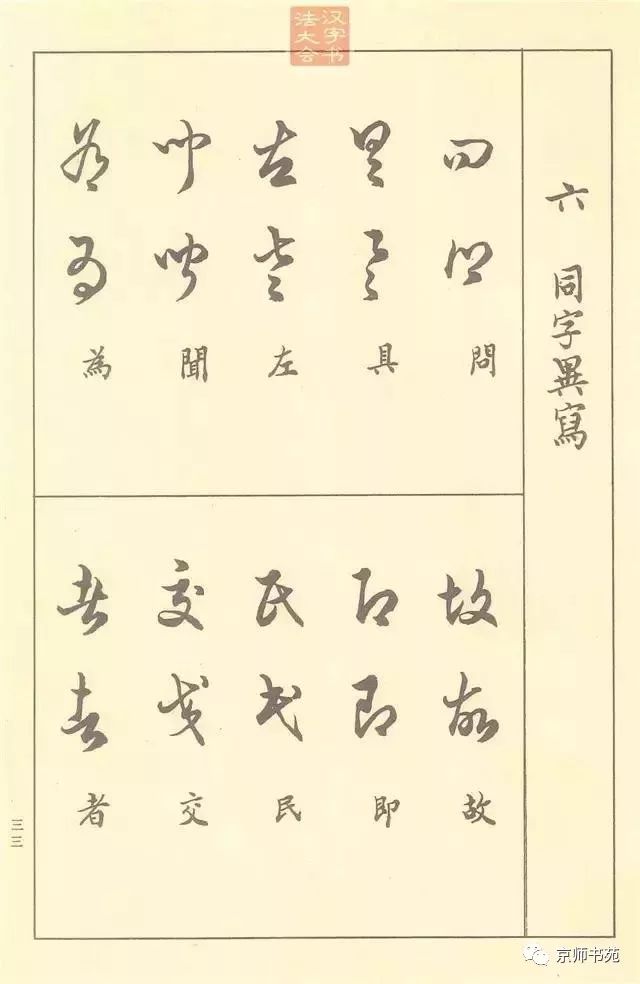 汉字书法大会
六 同字異寫
問
具
左
聞
為
故
即
民
交
者
三三
京师书苑